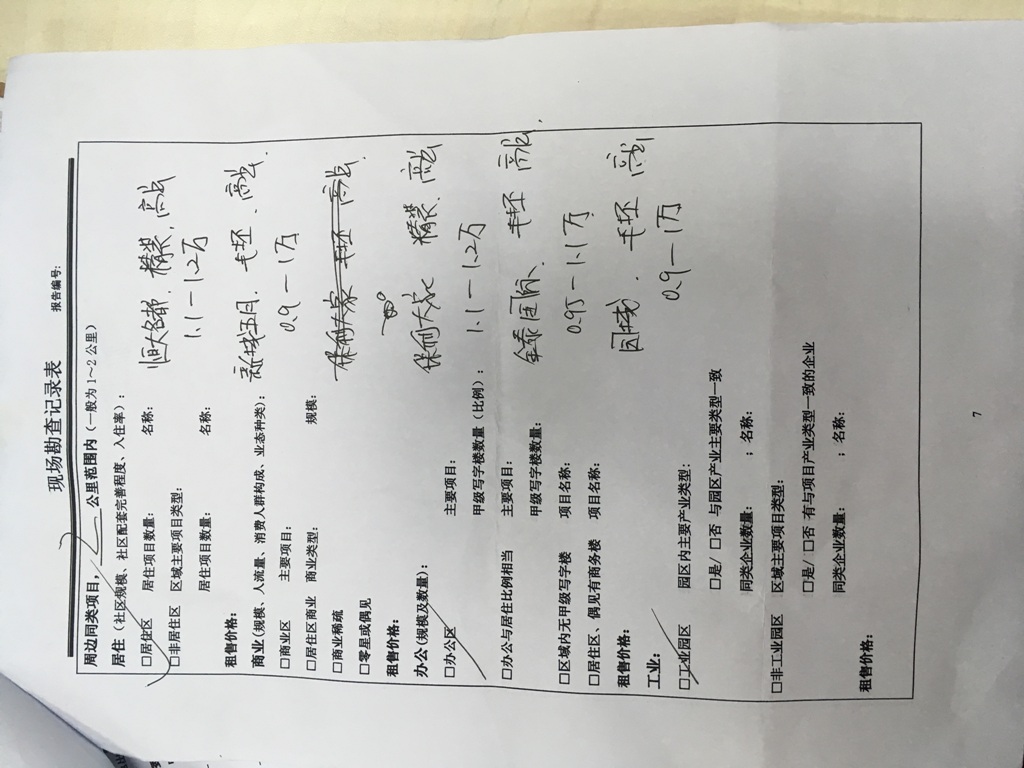 现场勘查记录表
报告编号:
周边同类项目, 2 公里范围内 (一般为 1~2 公里)
居住 (社区规模、社区配套完善程度、入住率):
□居住区 居住项目数量: 名称: 恒大名都, 精装, 高层
□非居住区 区域主要项目类型: 1.1-1.2万
居住项目数量: 名称:
租售价格: 新城五月. 毛坯. 高层.
商业(规模、人流量、消费人群构成、业态种类): 0.9-1万
□商业区 主要项目:
□居住区商业 商业类型: 规模:
□商业稀疏
□零星或偶见
租售价格:
办公(规模及数量): 保利大家 精装、高层
□办公区 主要项目:
甲级写字楼数量 (比例): 1.1-1.2万
□办公与居住比例相当 主要项目:
甲级写字楼数量: 毛坯 高层.
□区域内无甲级写字楼 项目名称: 0.95-1.1万
□居住区、偶见有商务楼 项目名称:
租售价格: 毛坯 高层
工业: 0.9-1万
□工业园区 园区内主要产业类型:
□是/□否 与园区产业主要类型一致
同类企业数量: ; 名称:
□非工业园区 区域主要项目类型:
□是/□否 有与项目产业类型一致的企业
同类企业数量: ; 名称:
租售价格:
7